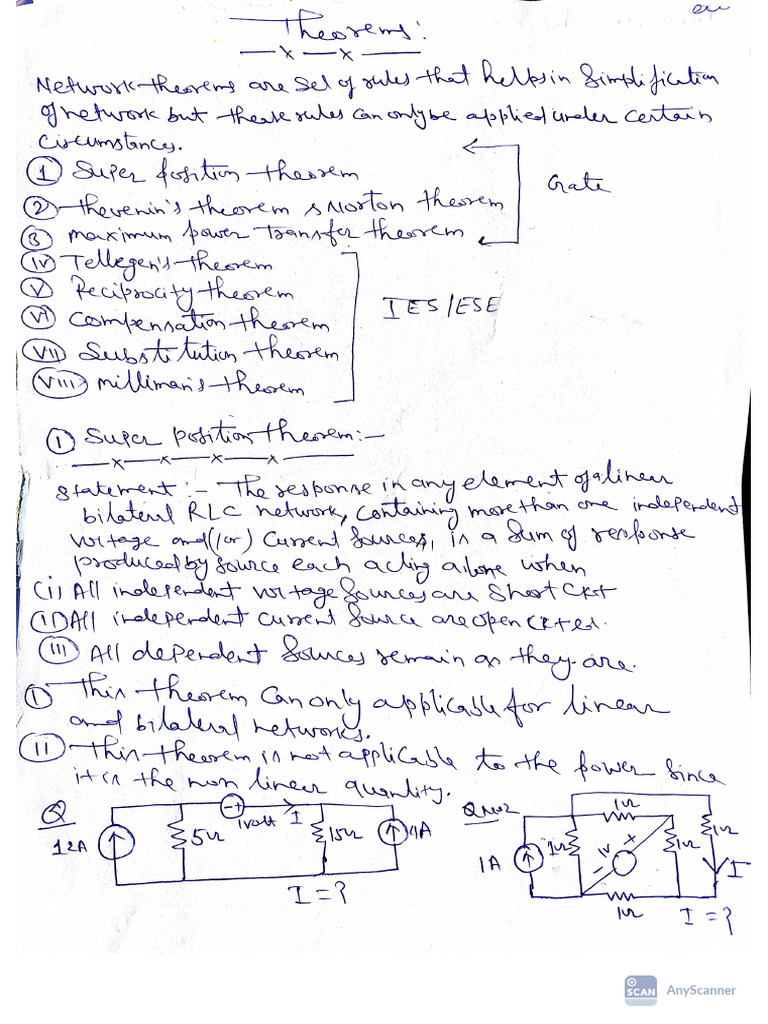 Theorems:
Network theorems are set of rules that helps in Simplification
of network but these rules can only be applied under certain
circumstances.
① Super position theorem
② thevenin's theorem & Norton theorem
③ maximum power Transfer theorem
Gate
ⅳ Tellegen's theorem
ⅴ Reciprocity theorem
ⅵ compensation theorem
ⅶ Substitution theorem
ⅷ milliman's theorem
IES/ESE
① Super position theorem:-
Statement :- The response in any element of a linear
bilateral RLC network, containing more than one independent
voltage and(/or) current sources, is a sum of response
produced by source each acting alone when
(i) All independent voltage sources are short ckt
(ii) All independent current source are open ckted.
(iii) All dependent sources remain as they are.
① This theorem can only applicable for linear
and bilateral networks.
(ii) This theorem is not applicable to the power since
it is the non linear quantity.
Q
12A
5Ω
- +
1 volt
I
15Ω
4A
I = ?
Que2
1A
1Ω
1Ω
- 1V +
1Ω
1Ω
I
1Ω
I = ?
SCAN AnyScanner